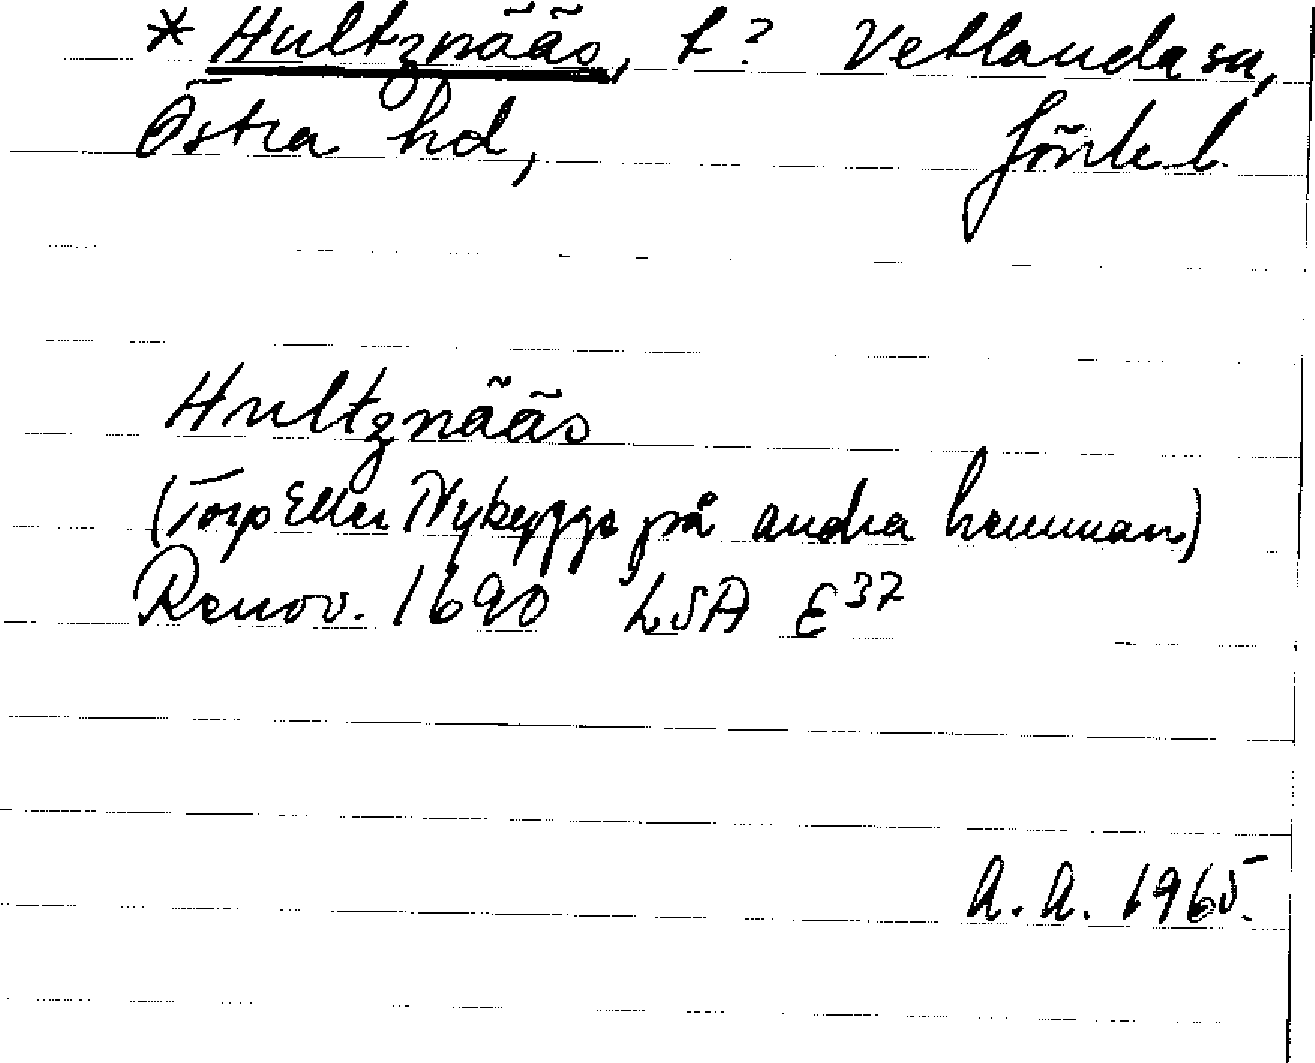 * Hultznääs, t? Vetlanda sn,
Östra hd, Jönk. l.
Hultznääs
(Torp Eller Nybygge på andra hemman)
Renov. 1690 LSA E37
A. A. 1965.